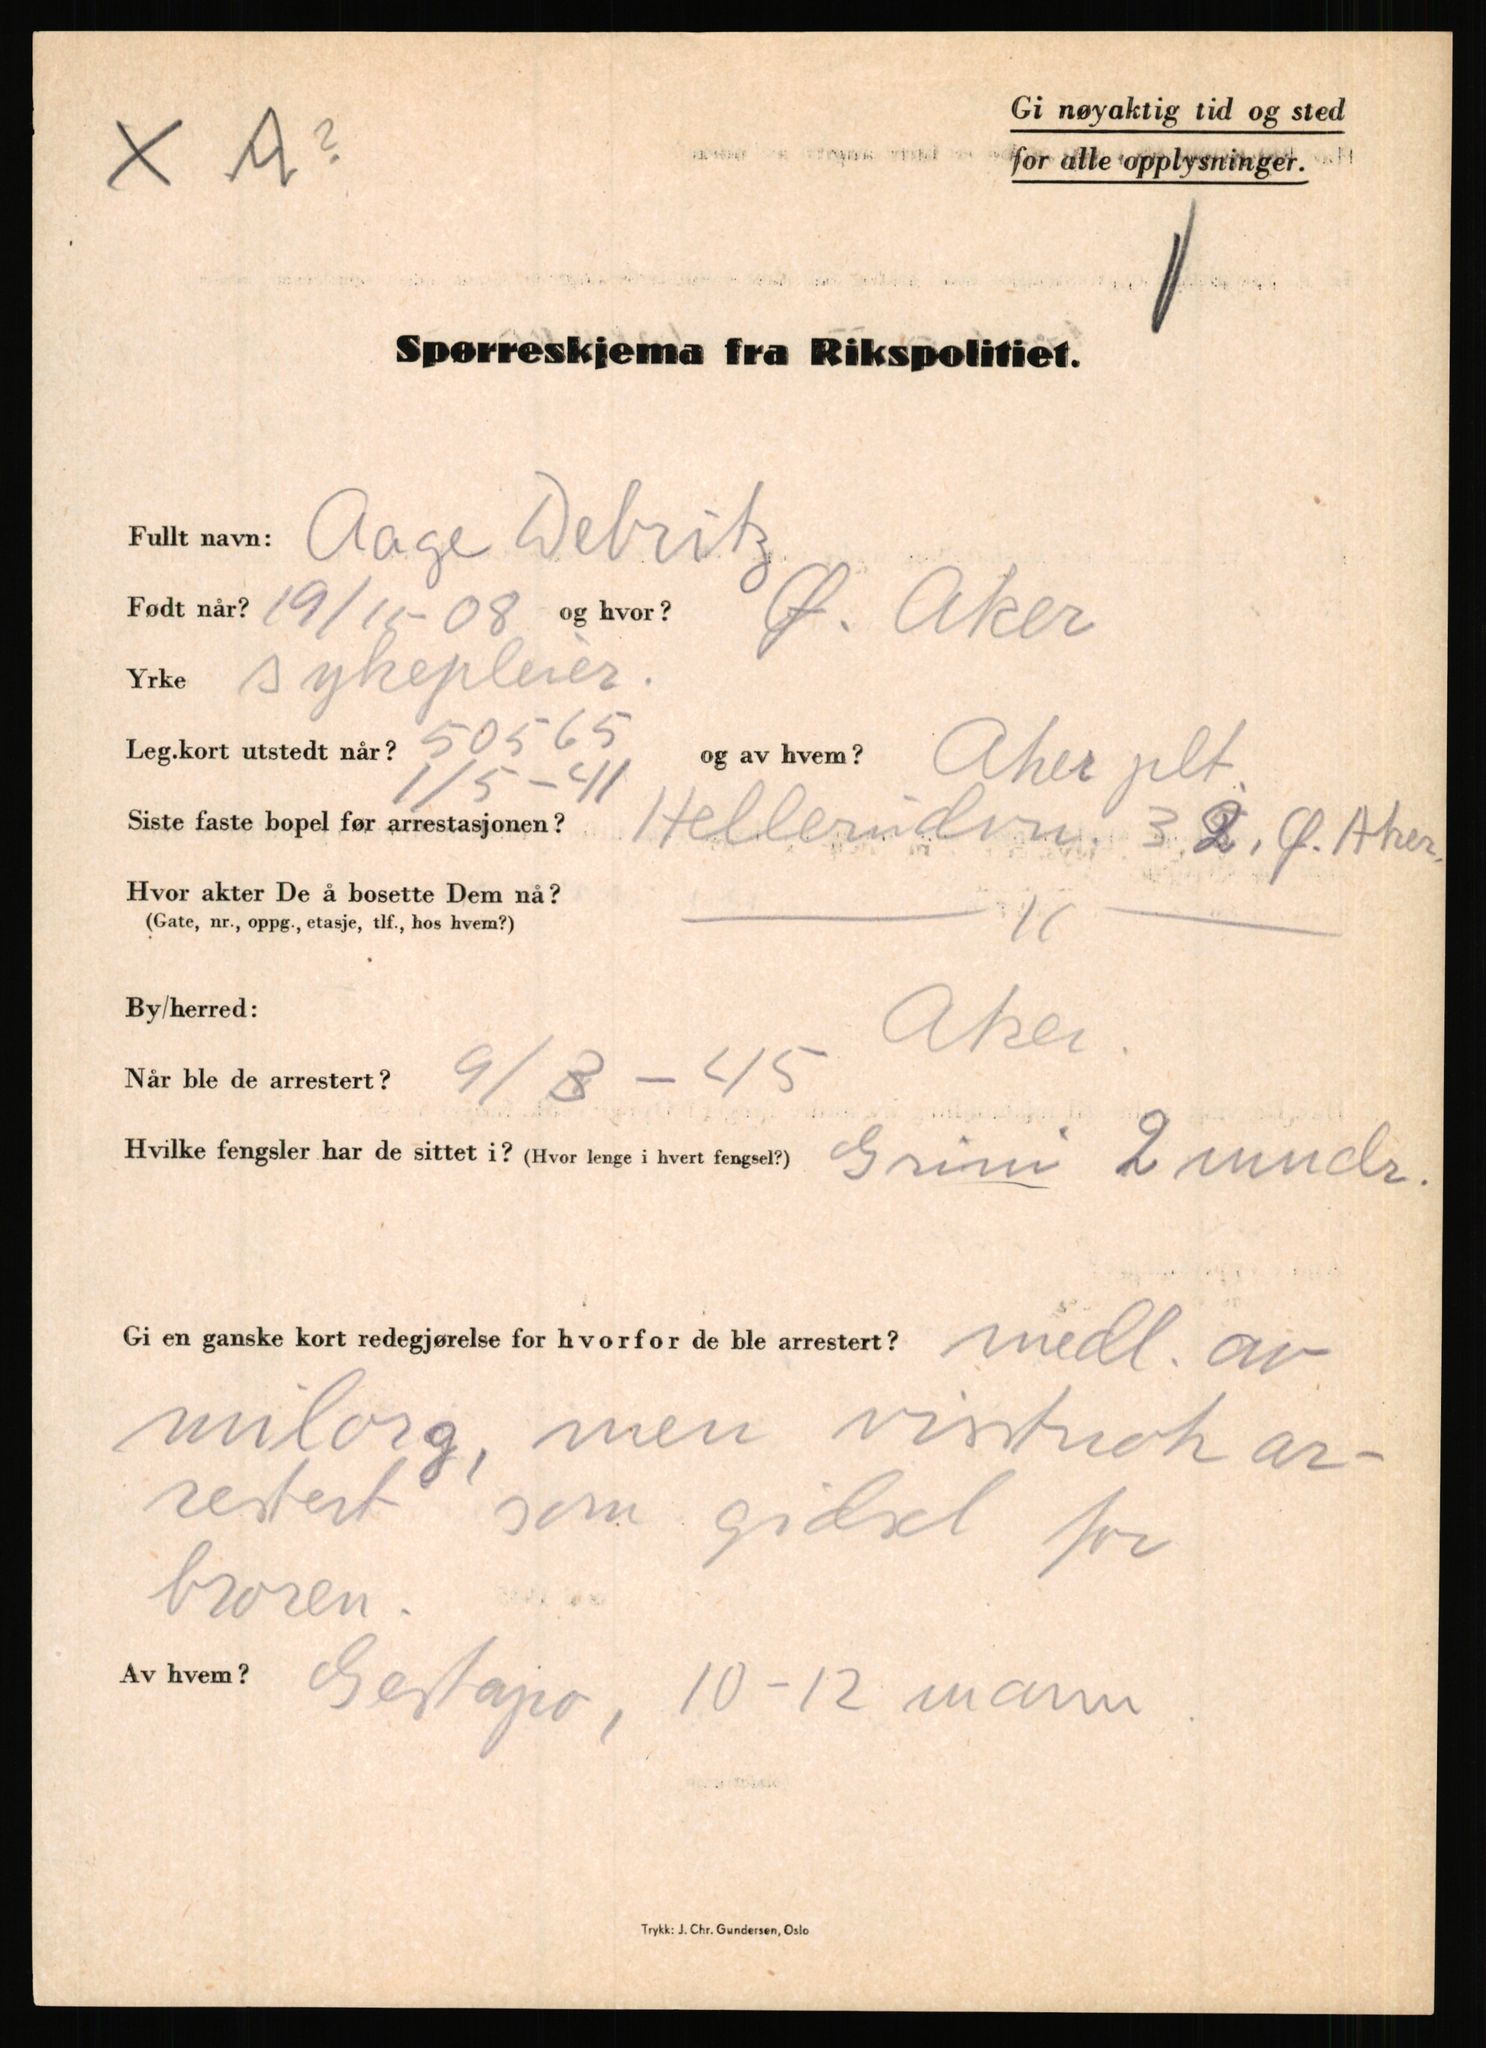 X A?
Gi nøyaktig tid og sted
for alle opplysninger.
Spørreskjema fra Rikspolitiet.
Fullt navn: Aage Debritz
Født når? 19/11-08 og hvor? Ø. Aker
Yrke sykepleier.
Leg.kort utstedt når? 50565 og av hvem? Aker plt.
1/5-41
Siste faste bopel før arrestasjonen? Hellerudvn. 32, Ø. Aker.
Hvor akter De å bosette Dem nå?
(Gate, nr., oppg., etasje, tlf., hos hvem?) — " —
By/herred: Aker.
Når ble de arrestert? 9/3-45
Hvilke fengsler har de sittet i? (Hvor lenge i hvert fengsel?) Grini 2 mndr.
Gi en ganske kort redegjørelse for hvorfor de ble arrestert? medl. av
milorg, men visstnok ar-
restert som gidsel for
broren.
Av hvem? Gestapo, 10-12 mann.
Trykk: J. Chr. Gundersen, Oslo